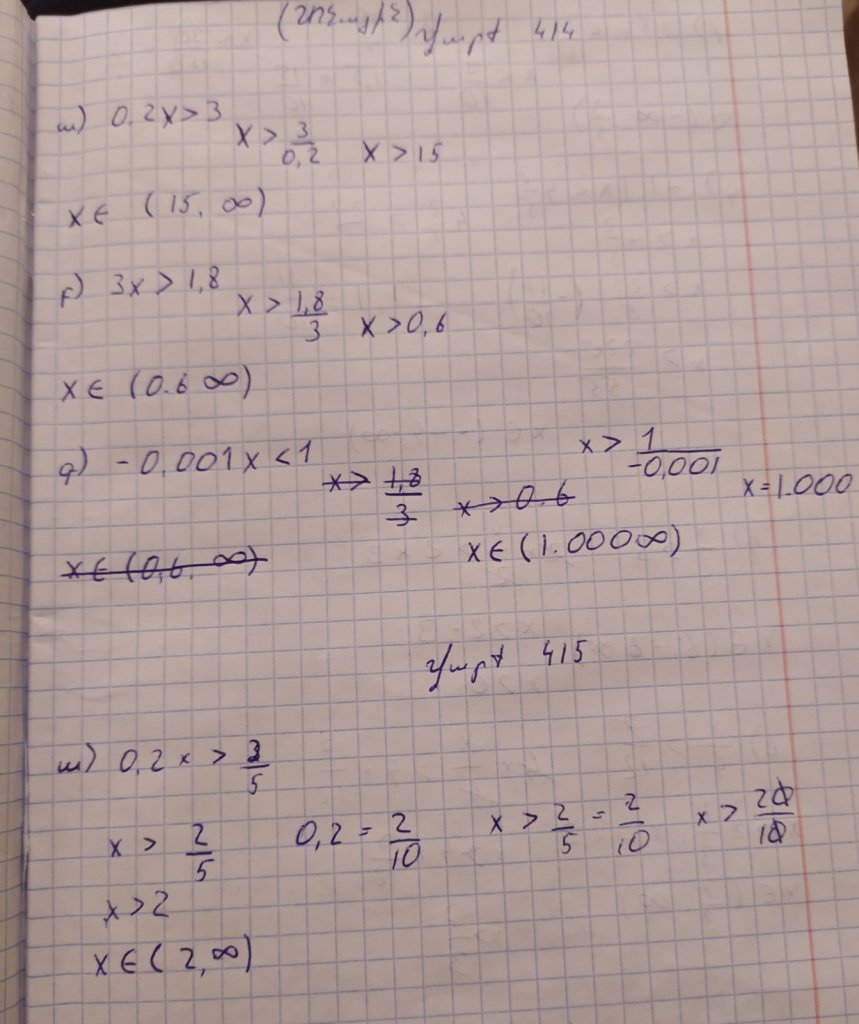 414
ա) 0,2x > 3 x > 3/0,2 x > 15
x ∈ (15, ∞)
բ) 3x > 1,8 x > 1,8/3 x > 0,6
x ∈ (0.6 ∞)
գ) -0,001x < 1 x > 1,8/3 x > 0.6 x > 1/-0,001 x = 1.000
x ∈ (0,6, ∞) x ∈ (1.000 ∞)
415
ա) 0,2x > 2/5
x > 2/5 0,2 = 2/10 x > 2/5 = 2/10 x > 20/10
x > 2
x ∈ (2, ∞)